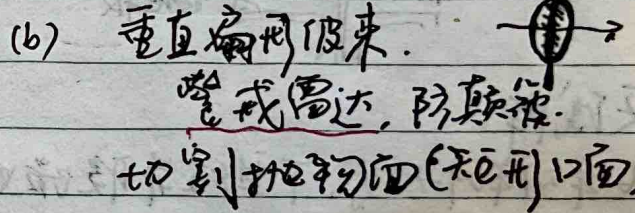 (b) 垂直扁形波束.
警戒雷达, 防颠簸.
切割抛物面(矩形)口面